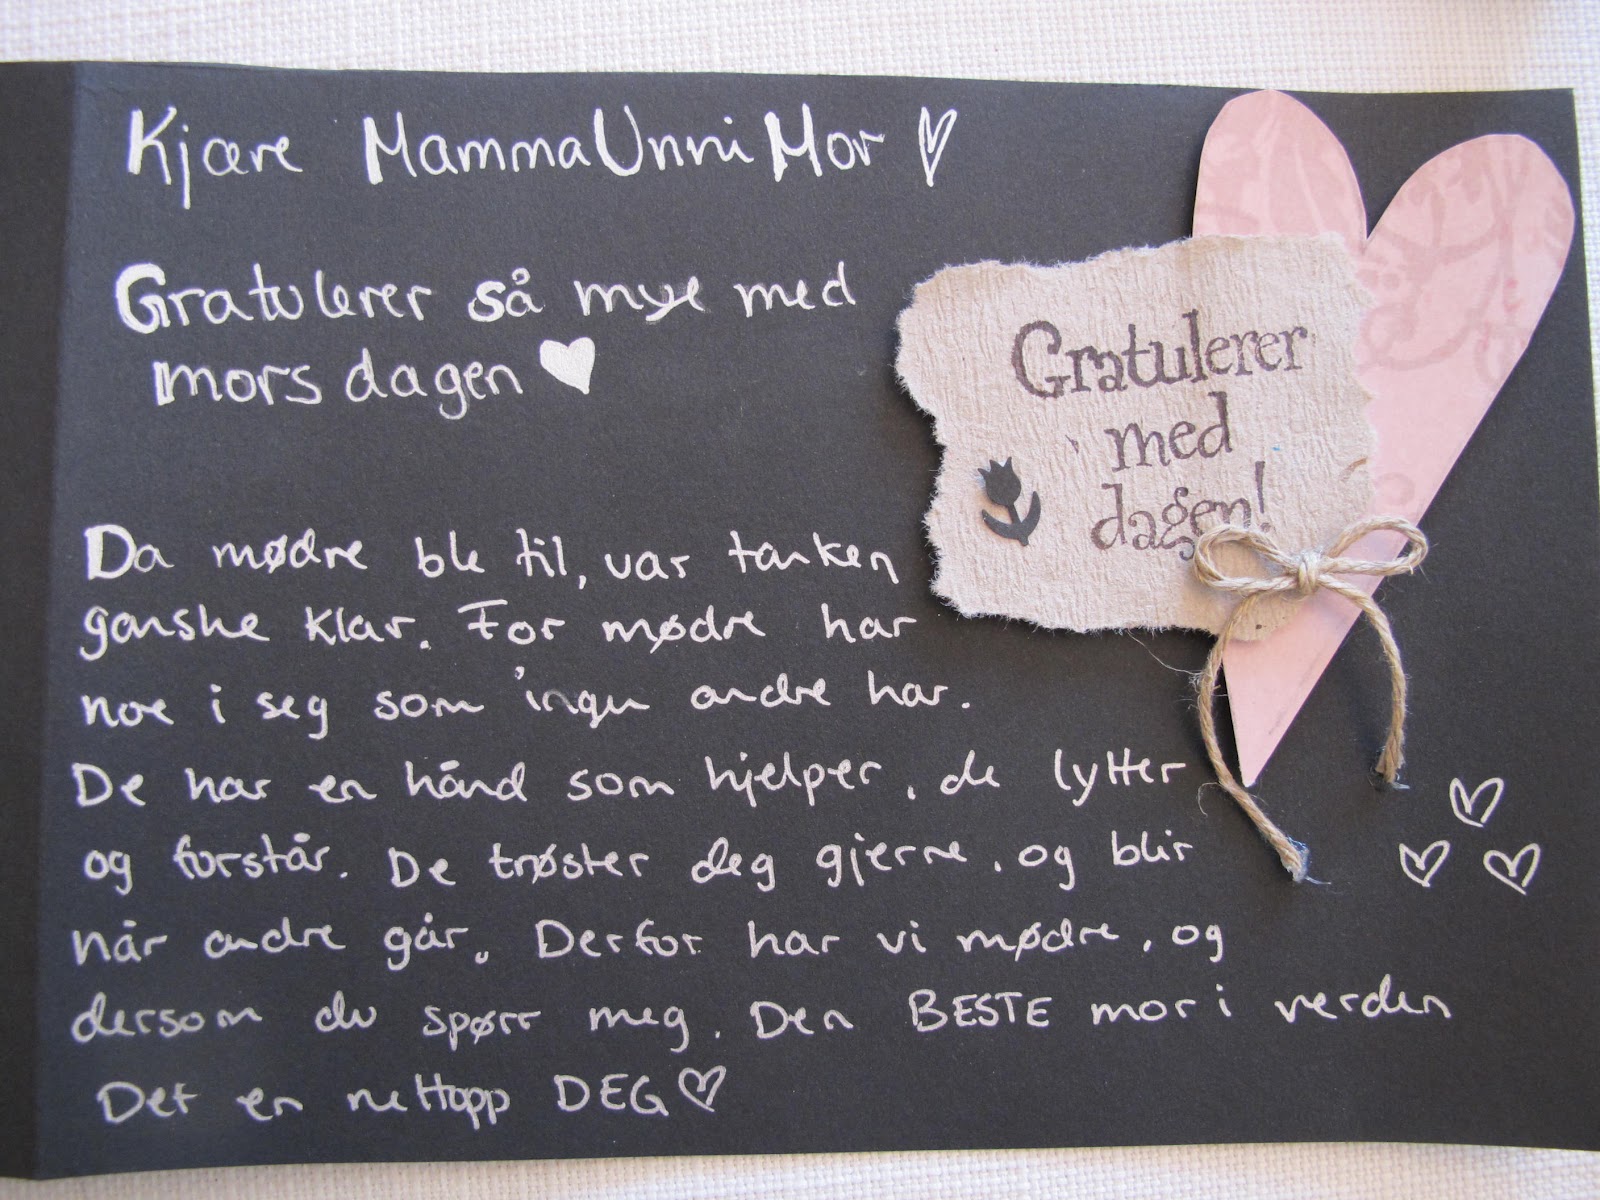 Kjære MammaUnniMor
Gratulerer så mye med
mors dagen
Gratulerer
med
dagen!
Da mødre ble til, var tanken
ganske klar. For mødre har
noe i seg som ingen andre har.
De har en hånd som hjelper, de lytter
og forstår. De trøster deg gjerne, og blir
når andre går. Derfor har vi mødre, og
dersom du spørr meg. Den BESTE mor i verden
Det er nettopp DEG